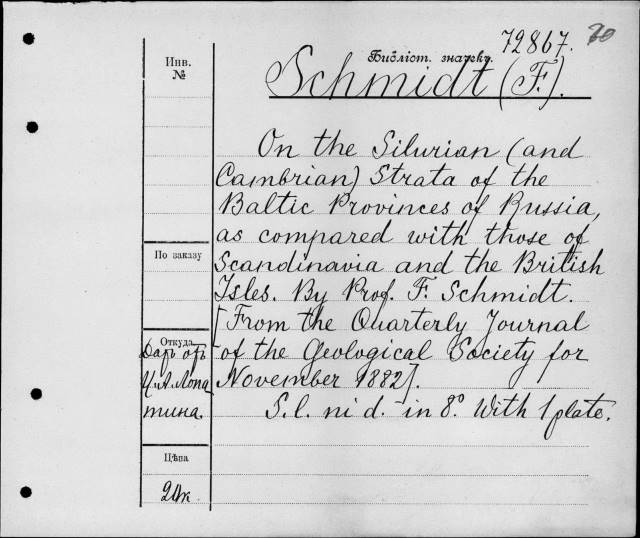 72867. 70
Библіот. значекъ.
Schmidt (F.).
Инв.
№
On the Silurian (and
Cambrian) Strata of the
Baltic Provinces of Russia,
as compared with those of
Scandinavia and the British
Isles. By Prof. F. Schmidt.
[From the Quarterly Journal
of the Geological Society for
November 1882].
S. l. ni d. in 8º. With 1 plate.
По заказу
Откуда
Даръ отъ
И. А. Лопа
тина.
Цѣна